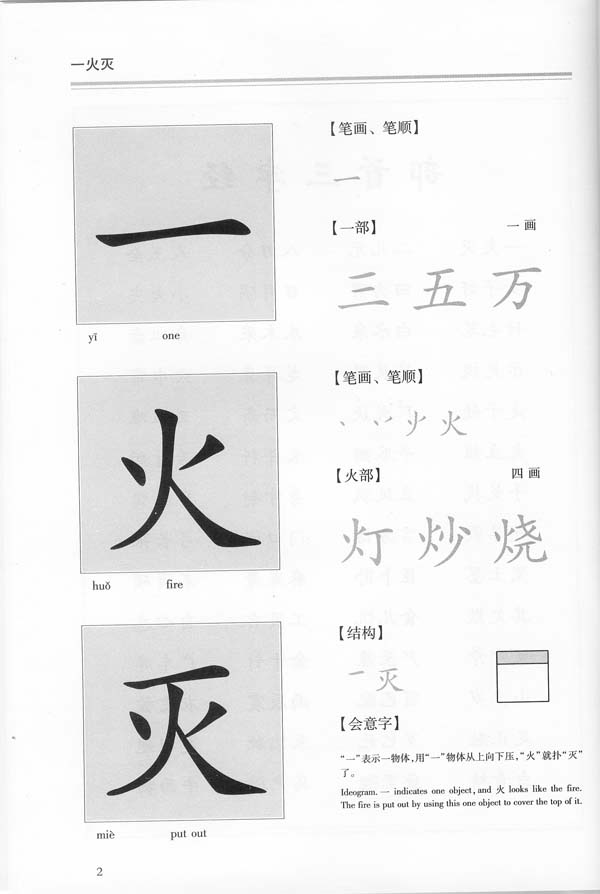 一火灭
一
yī one
【笔画、笔顺】
一
【一部】 一 画
三 五 万
火
huǒ fire
【笔画、笔顺】
丶 丷 火 火
【火部】 四 画
灯 炒 烧
灭
miè put out
【结构】
一 灭
【会意字】
“一”表示一物体,用“一”物体从上向下压,“火”就扑“灭”
了。
Ideogram. 一 indicates one object, and 火 looks like the fire.
The fire is put out by using this one object to cover the top of it.
2